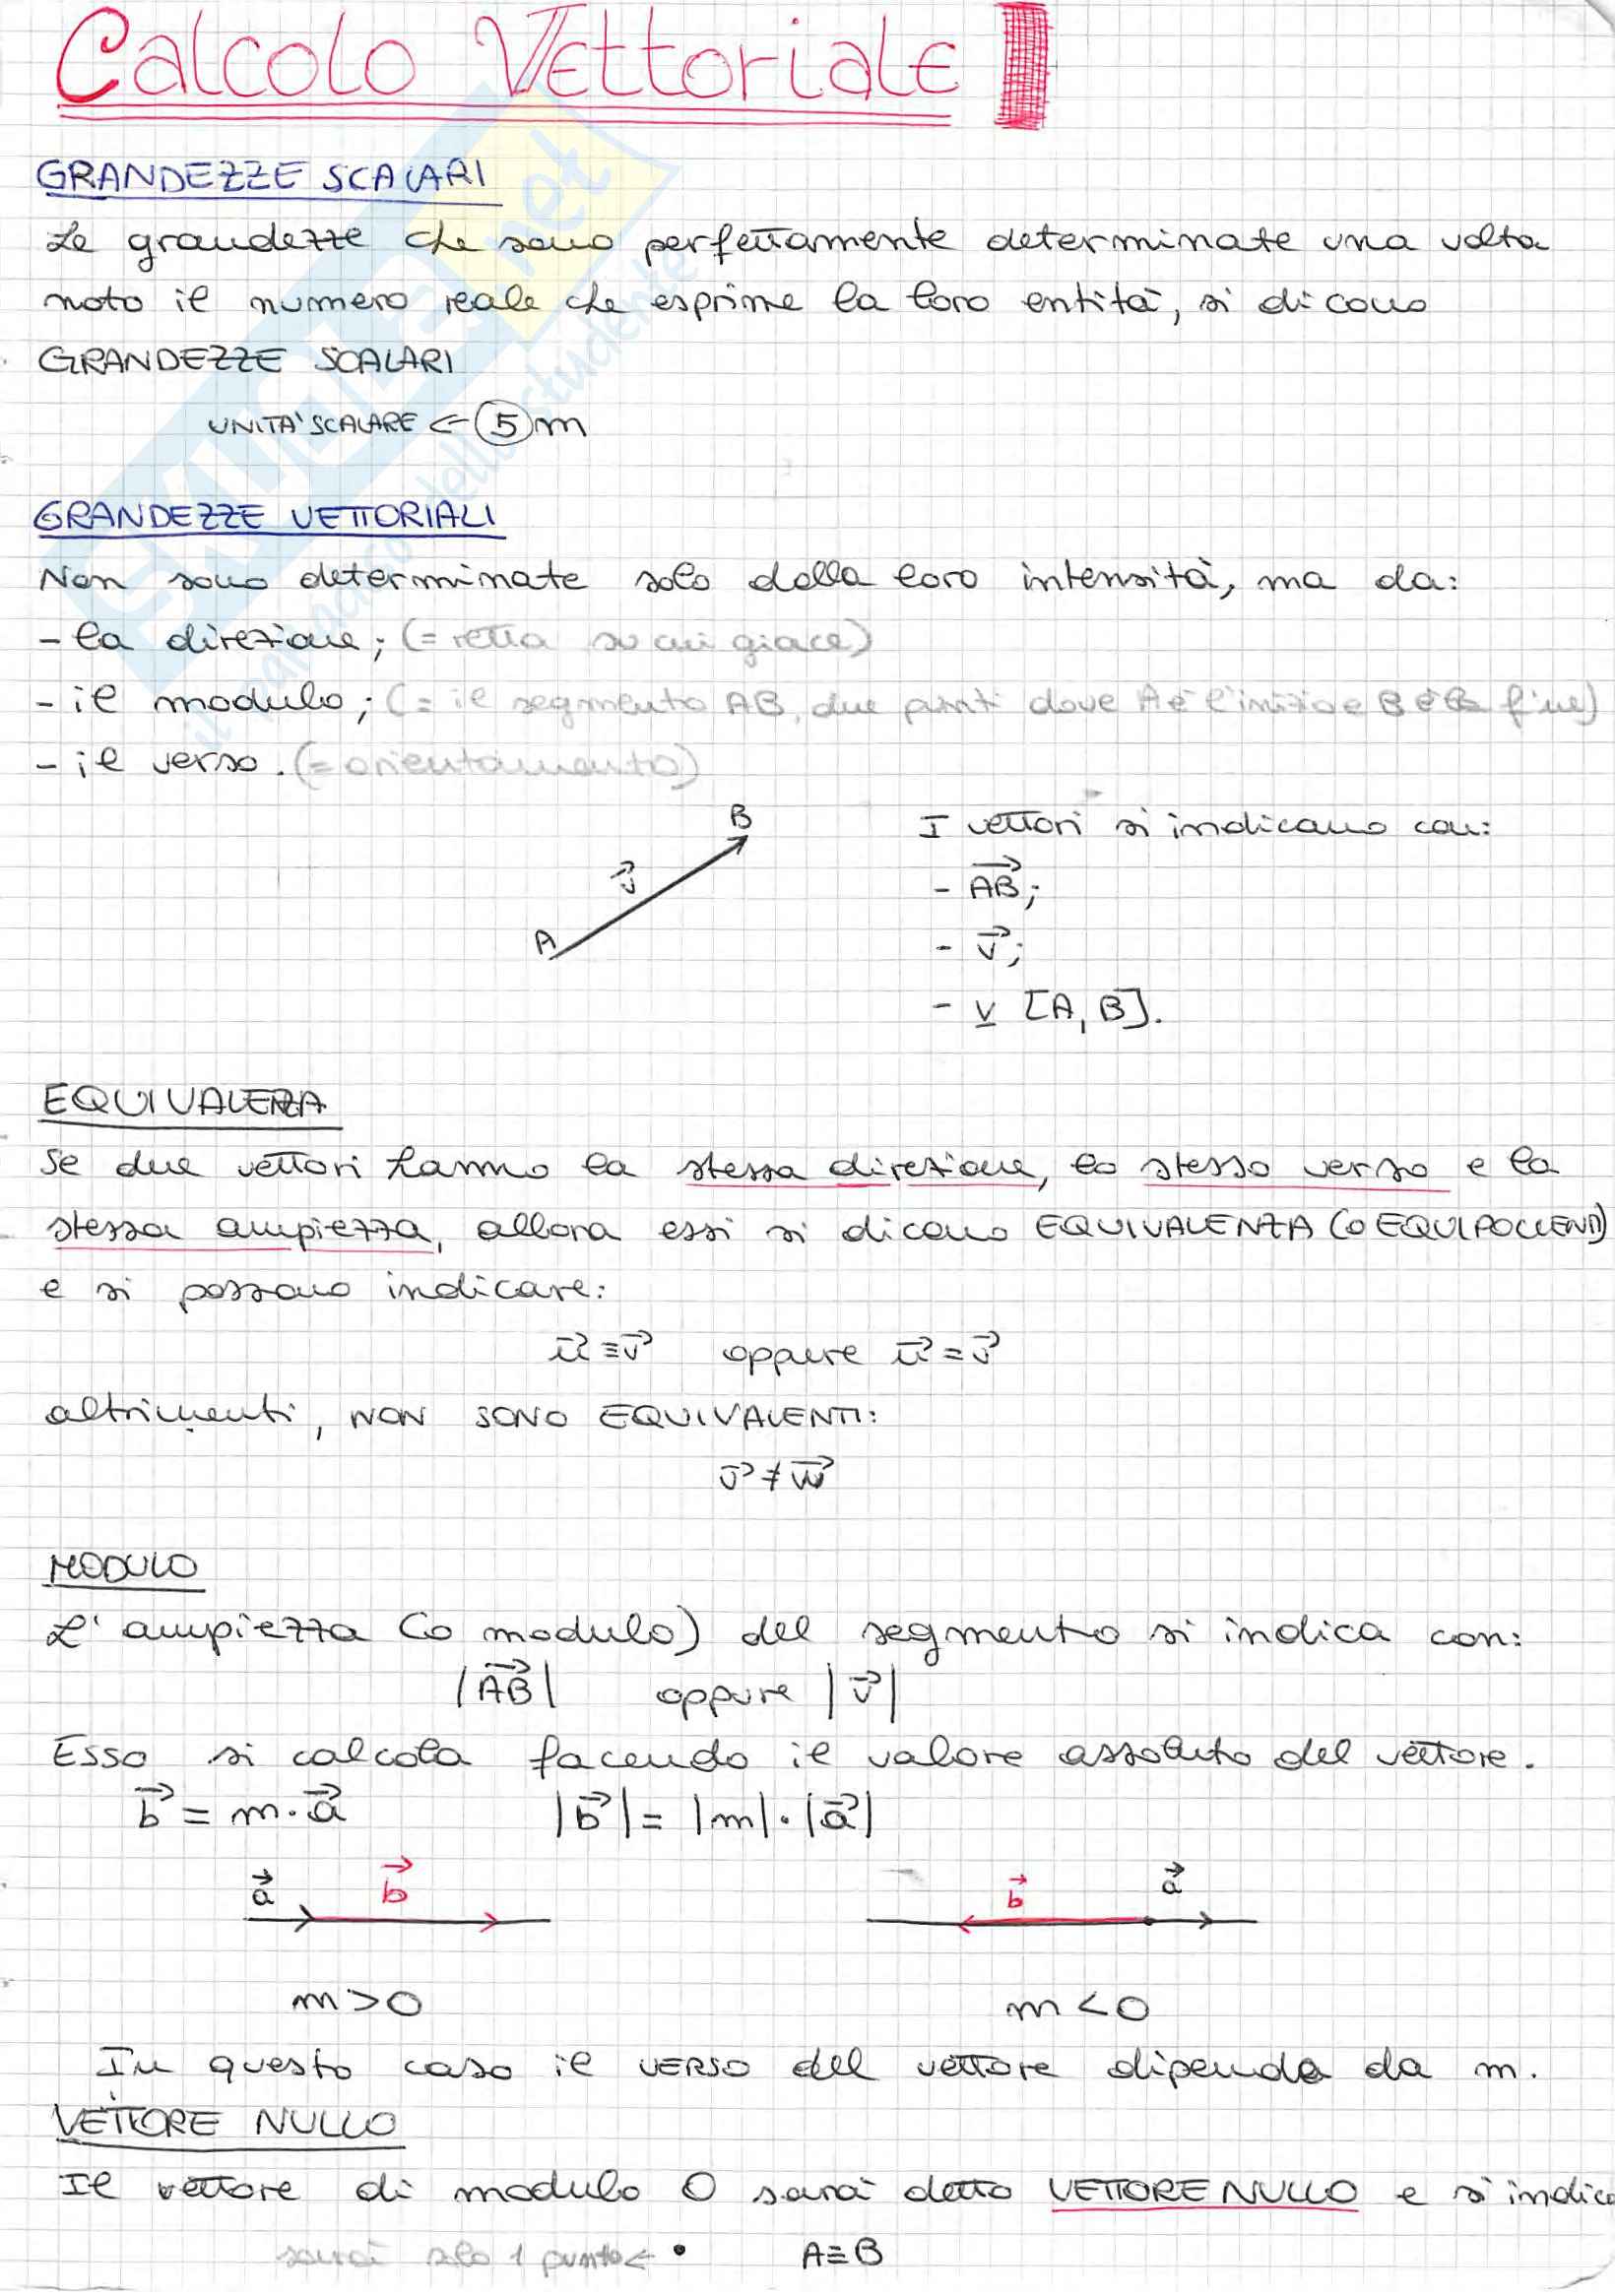 Calcolo Vettoriale
GRANDEZZE SCALARI
Le grandezze che sono perfettamente determinate una volta
noto il numero reale che esprime la loro entità, si dicono
GRANDEZZE SCALARI
UNITA' SCALARE ← 5 m
GRANDEZZE VETTORIALI
Non sono determinate solo dalla loro intensità, ma da:
- la direzione; (= retta su cui giace)
- il modulo; (= il segmento AB, due punti dove A è l'inizio e B è la fine)
- il verso. (= orientamento)
B
v⃗
A
I vettori si indicano con:
- A⃗B⃗;
- v⃗;
- v̲ [A, B].
EQUIVALENZA
Se due vettori hanno la stessa direzione, lo stesso verso e la
stessa ampiezza, allora essi si dicono EQUIVALENZA (o EQUIPOLLENTI)
e si possono indicare:
u⃗ ≡ v⃗ oppure u⃗ = v⃗
altrimenti, NON SONO EQUIVALENTI:
v⃗ ≠ w⃗
MODULO
L'ampiezza (o modulo) del segmento si indica con:
|A⃗B⃗| oppure |v⃗|
Esso si calcola facendo il valore assoluto del vettore.
b⃗ = m · a⃗ |b⃗| = |m| · |a⃗|
a⃗ b⃗ b⃗ a⃗
m > 0 m < 0
In questo caso il VERSO del vettore dipende da m.
VETTORE NULLO
Il vettore di modulo 0 sarà detto VETTORE NULLO e si indica
sarà solo 1 punto ← • A ≡ B
SKUOLA.net
il paradiso dello studente